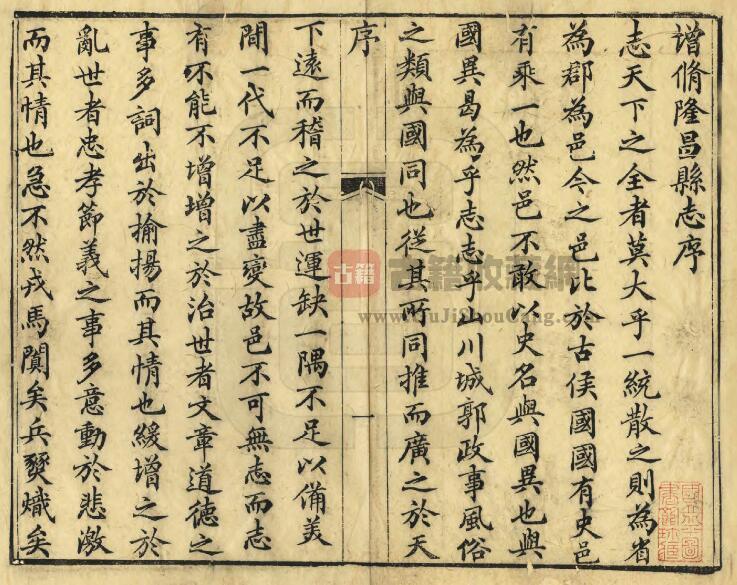 增脩隆昌縣志序
志天下之全者莫大乎一統散之則為省
為郡為邑今之邑比於古侯國國有史邑
有乘一也然邑不敢以史名與國異也與
國異曷為乎志志乎山川城郭政事風俗
之類與國同也從其所同推而廣之於天
序
一
下遠而稽之於世運缺一隅不足以備美
間一代不足以盡變故邑不可無志而志
有不能不增增之於治世者文章道德之
事多詞出於揄揚而其情也緩增之於
亂世者忠孝節義之事多意動於悲激
而其情也急不然戎馬闐矣兵燹熾矣
古籍
古籍收藏網
www.GuJiShouCang.com